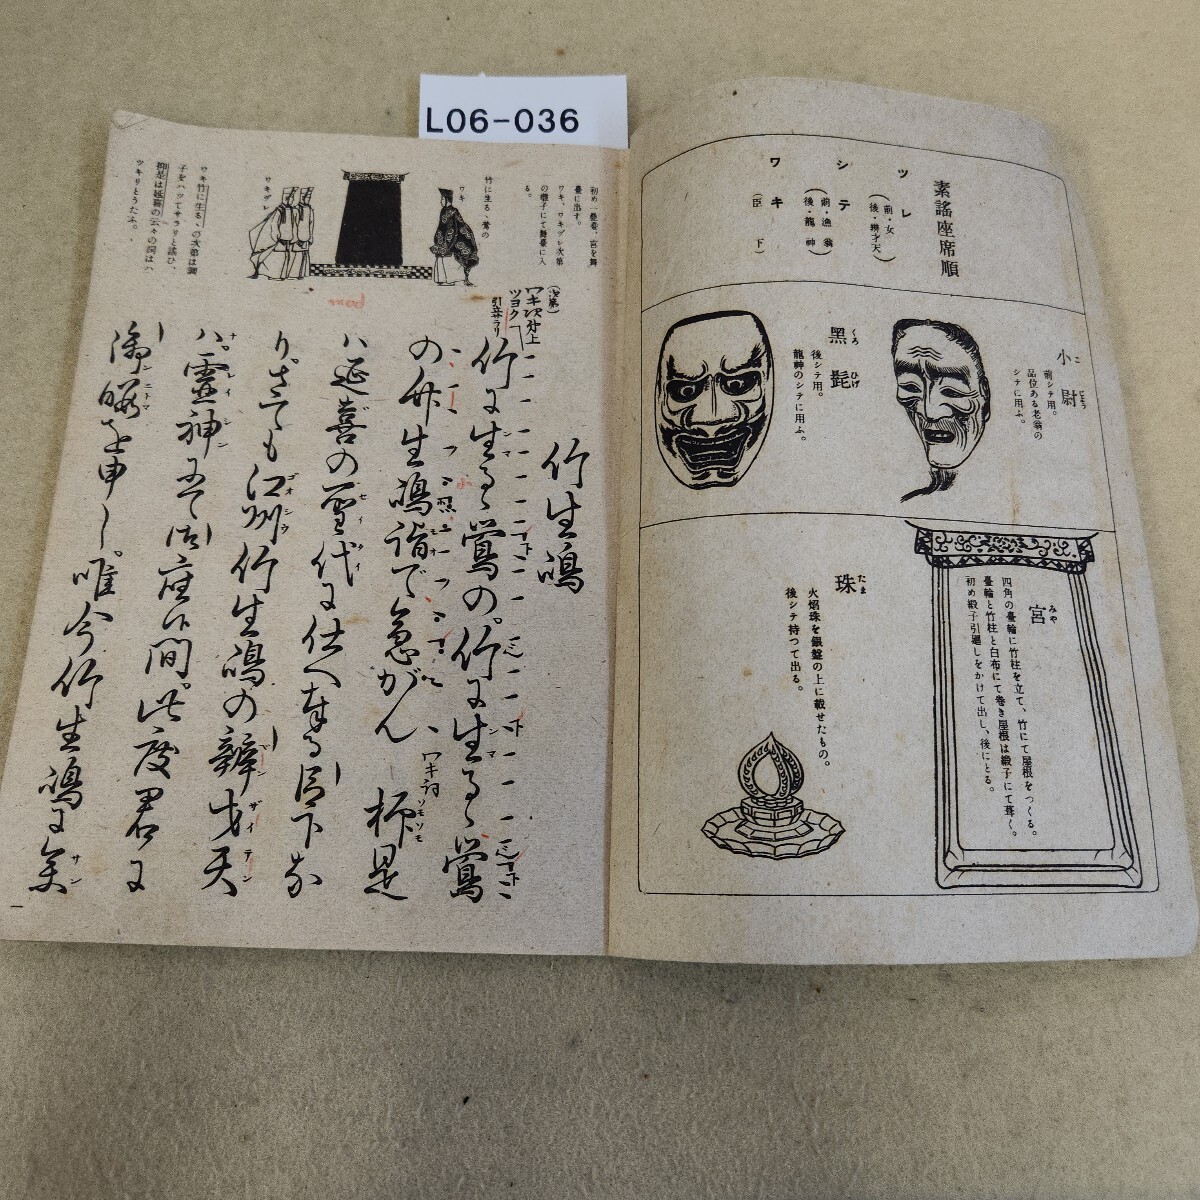 L06-036
素謠座席順
ツレ
(前・女
後・辨才天)
シテ
(前・漁翁
後・龍神)
ワキ
(臣下)
小尉
こじょう
前シテ用。
品位ある老翁の
シテに用ふ。
黑髭
くろひげ
後シテ用。
龍神のシテに用ふ。
宮
みや
四角の臺輪に竹柱を立て、竹にて屋根をつくる。
臺輪と竹柱と白布にて卷き屋根は緞子にて葺く。
初め緞子引廻しをかけて出し、後にとる。
珠
たま
火焰珠を銀盤の上に載せたもの。
後シテ持つて出る。
初め一疊臺、宮を舞
臺に出す。
ワキ、ワキヅレ次第
の囃子にて舞臺に入
る。
竹に生るゝ鶯の
ワキ
ワキヅレ
ワキ竹に生るゝの次第は調
子をハツてサラリと謠ひ、
抑是は延喜の云々の詞はハ
ツキリとうたふ。
竹生嶋
(次第)
ワキ次第上
ツヨク
竹に生るゝ鶯の。竹に生るゝ鶯
の竹生嶋詣で急がん
ワキ詞
抑是
ソモソモ
ハ延喜の聖代に仕へ奉る臣下な
り。さても江州竹生嶋の辨才天
ハ。靈神にて御座候間。此度君に
御暇を申し。唯今竹生嶋に參
一